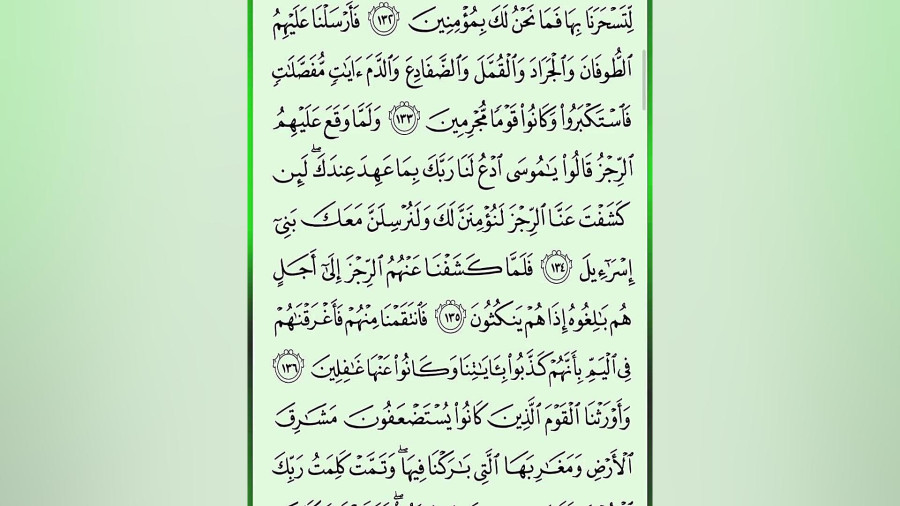 لِّتَسْحَرَنَا بِهَا فَمَا نَحْنُ لَكَ بِمُؤْمِنِينَ ١٣٢ فَأَرْسَلْنَا عَلَيْهِمُ
ٱلطُّوفَانَ وَٱلْجَرَادَ وَٱلْقُمَّلَ وَٱلضَّفَادِعَ وَٱلدَّمَ ءَايَٰتٍ مُّفَصَّلَٰتٍ
فَٱسْتَكْبَرُوا۟ وَكَانُوا۟ قَوْمًا مُّجْرِمِينَ ١٣٣ وَلَمَّا وَقَعَ عَلَيْهِمُ
ٱلرِّجْزُ قَالُوا۟ يَٰمُوسَى ٱدْعُ لَنَا رَبَّكَ بِمَا عَهِدَ عِندَكَ ۖ لَئِن
كَشَفْتَ عَنَّا ٱلرِّجْزَ لَنُؤْمِنَنَّ لَكَ وَلَنُرْسِلَنَّ مَعَكَ بَنِىٓ
إِسْرَٰٓءِيلَ ١٣٤ فَلَمَّا كَشَفْنَا عَنْهُمُ ٱلرِّجْزَ إِلَىٰٓ أَجَلٍ
هُم بَٰلِغُوهُ إِذَا هُمْ يَنكُثُونَ ١٣٥ فَٱنتَقَمْنَا مِنْهُمْ فَأَغْرَقْنَٰهُمْ
فِى ٱلْيَمِّ بِأَنَّهُمْ كَذَّبُوا۟ بِـَٔايَٰتِنَا وَكَانُوا۟ عَنْهَا غَٰفِلِينَ ١٣٦
وَأَوْرَثْنَا ٱلْقَوْمَ ٱلَّذِينَ كَانُوا۟ يُسْتَضْعَفُونَ مَشَٰرِقَ
ٱلْأَرْضِ وَمَغَٰرِبَهَا ٱلَّتِى بَٰرَكْنَا فِيهَا ۖ وَتَمَّتْ كَلِمَتُ رَبِّكَ